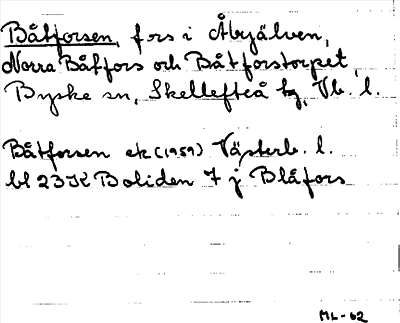 Båtforsen, fors i Åbyälven,
Norra Båtfors och Båtforstorpet,
Byske sn, Skellefteå tg, Vb. l.
Båtforsen ek (1959) Västerb. l.
bl 23K Boliden 7 j Blåfors
ML-62